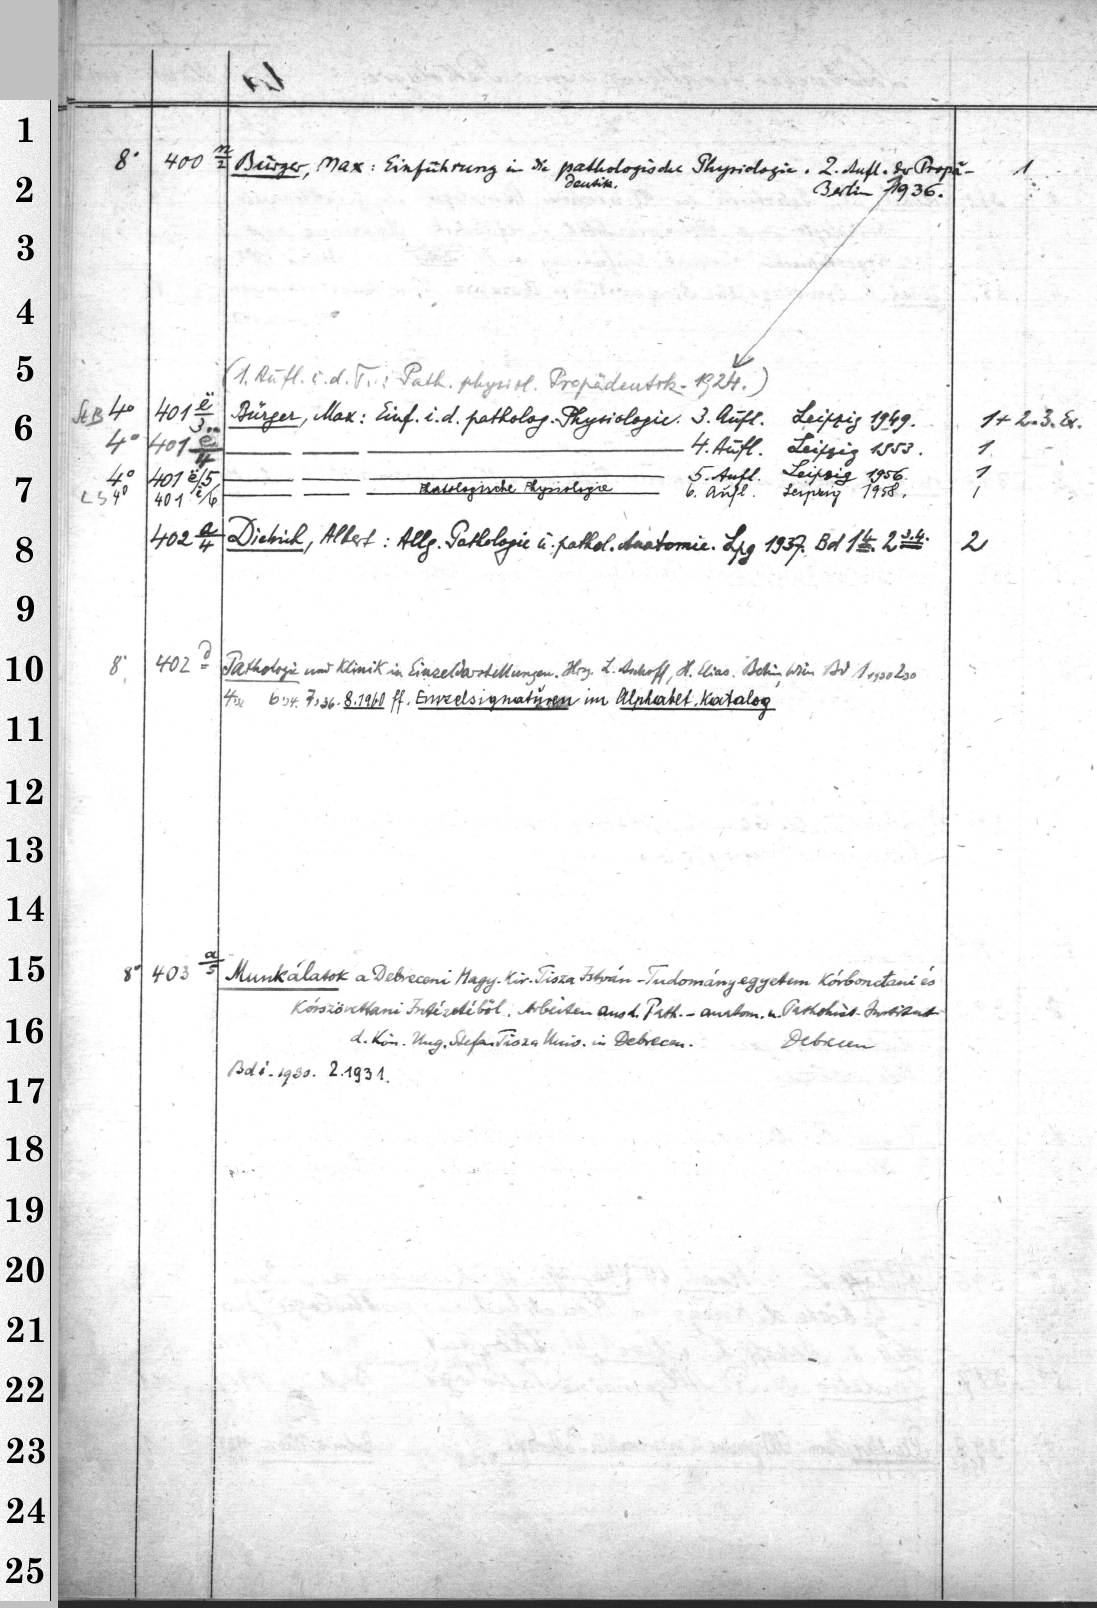 1
2
3
4
5
6
7
8
9
10
11
12
13
14
15
16
17
18
19
20
21
22
23
24
25
8° 400 n/2 Bürger, Max: Einführung in die pathologische Physiologie. 2. Aufl. der Propä- 1
deutik. Berlin 1936.
(1. Aufl. u. d. T.: Path. physiol. Propädeutik. 1924.)
StB 4° 401 ë/3 Bürger, Max: Einf. i. d. patholog. Physiologie. 3. Aufl. Leipzig 1949. 1+2.3. Ex.
4° 401 ë/4 — — — 4. Aufl. Leipzig 1953. 1
4° 401 ë/5 — — — 5. Aufl. Leipzig 1956. 1
LS 4° 401 ë/6 — — Pathologische Physiologie — 6. Aufl. Leipzig 1958. 1
402 a/4 Dietrich, Albert: Allg. Pathologie u. pathol. Anatomie. Lpg 1937. Bd 1 4. 2 3.4. 2
8° 402 d Pathologie und Klinik in Einzeldarstellungen. Hrg. L. Aschoff, H. Elias. Berlin, Wien Bd 1 1930 2 30
6 34. 7, 36. 8.1960 ff. Einzelsignaturen im Alphabet. Katalog
8° 403 a/5 Munkálatok a Debreceni Magy. Kir. Tisza István-Tudományegyetem Kórbonctani és
Kórszövettani Intézetéből. Arbeiten aus d. Path.-anatom. u. Pathohist. Institut
d. Kön. Ung. Stefan Tisza Univ. in Debrecen. Debrecen
Bd 1. 1930. 2.1931.